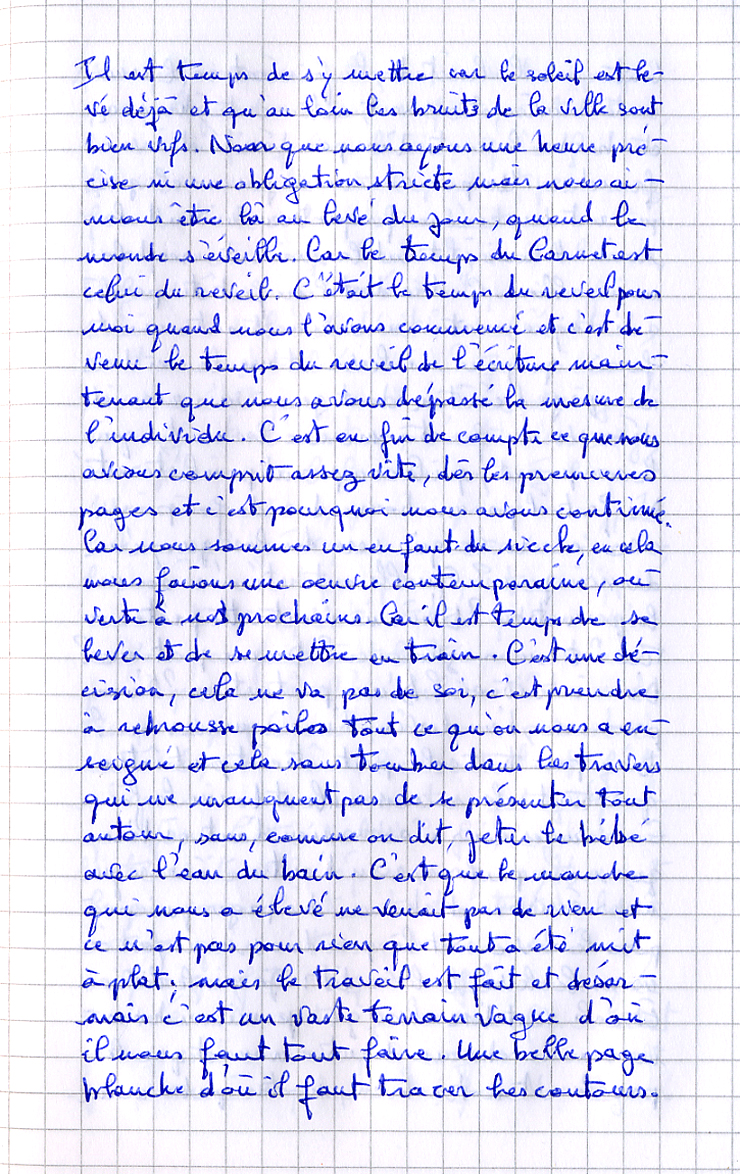 Il est temps de s'y mettre car le soleil est le-
vé déjà et qu'au loin les bruits de la ville sont
bien vifs. Non que nous ayons une heure pré-
cise ni une obligation stricte mais nous ai-
mons être là au levé du jour, quand le
monde s'éveille. Car le temps du Carnet est
celui du reveil. C'était le temps du reveil pour
moi quand nous l'avons commencé et c'est de-
venu le temps du reveil de l'écriture main-
tenant que nous avons dépassé la mesure de
l'individu. C'est en fin de compte ce que nous
avions comprit assez vite, dès les premieres
pages et c'est pourquoi nous avons continué.
Car nous sommes un enfant du siecle, en cela
nous faisons une oeuvre contemporaine, ou-
verte à nos prochains. Car il est temps de se
lever et de se mettre en train. C'est une dé-
cision, cela ne va pas de soi, c'est prendre
à rebrousse poiles tout ce qu'on nous a en-
seigné et cela sans tomber dans les travers
qui ne manquent pas de se présenter tout
autour, sans, comme on dit, jeter le bébé
avec l'eau du bain. C'est que le monde
qui nous a élevé ne venait pas de rien et
ce n'est pas pour rien que tout a été mit
à plat; mais le travail est fait et désor-
mais c'est un vaste terrain vague d'où
il nous faut tout faire. Une belle page
blanche d'où il faut tracer les contours.